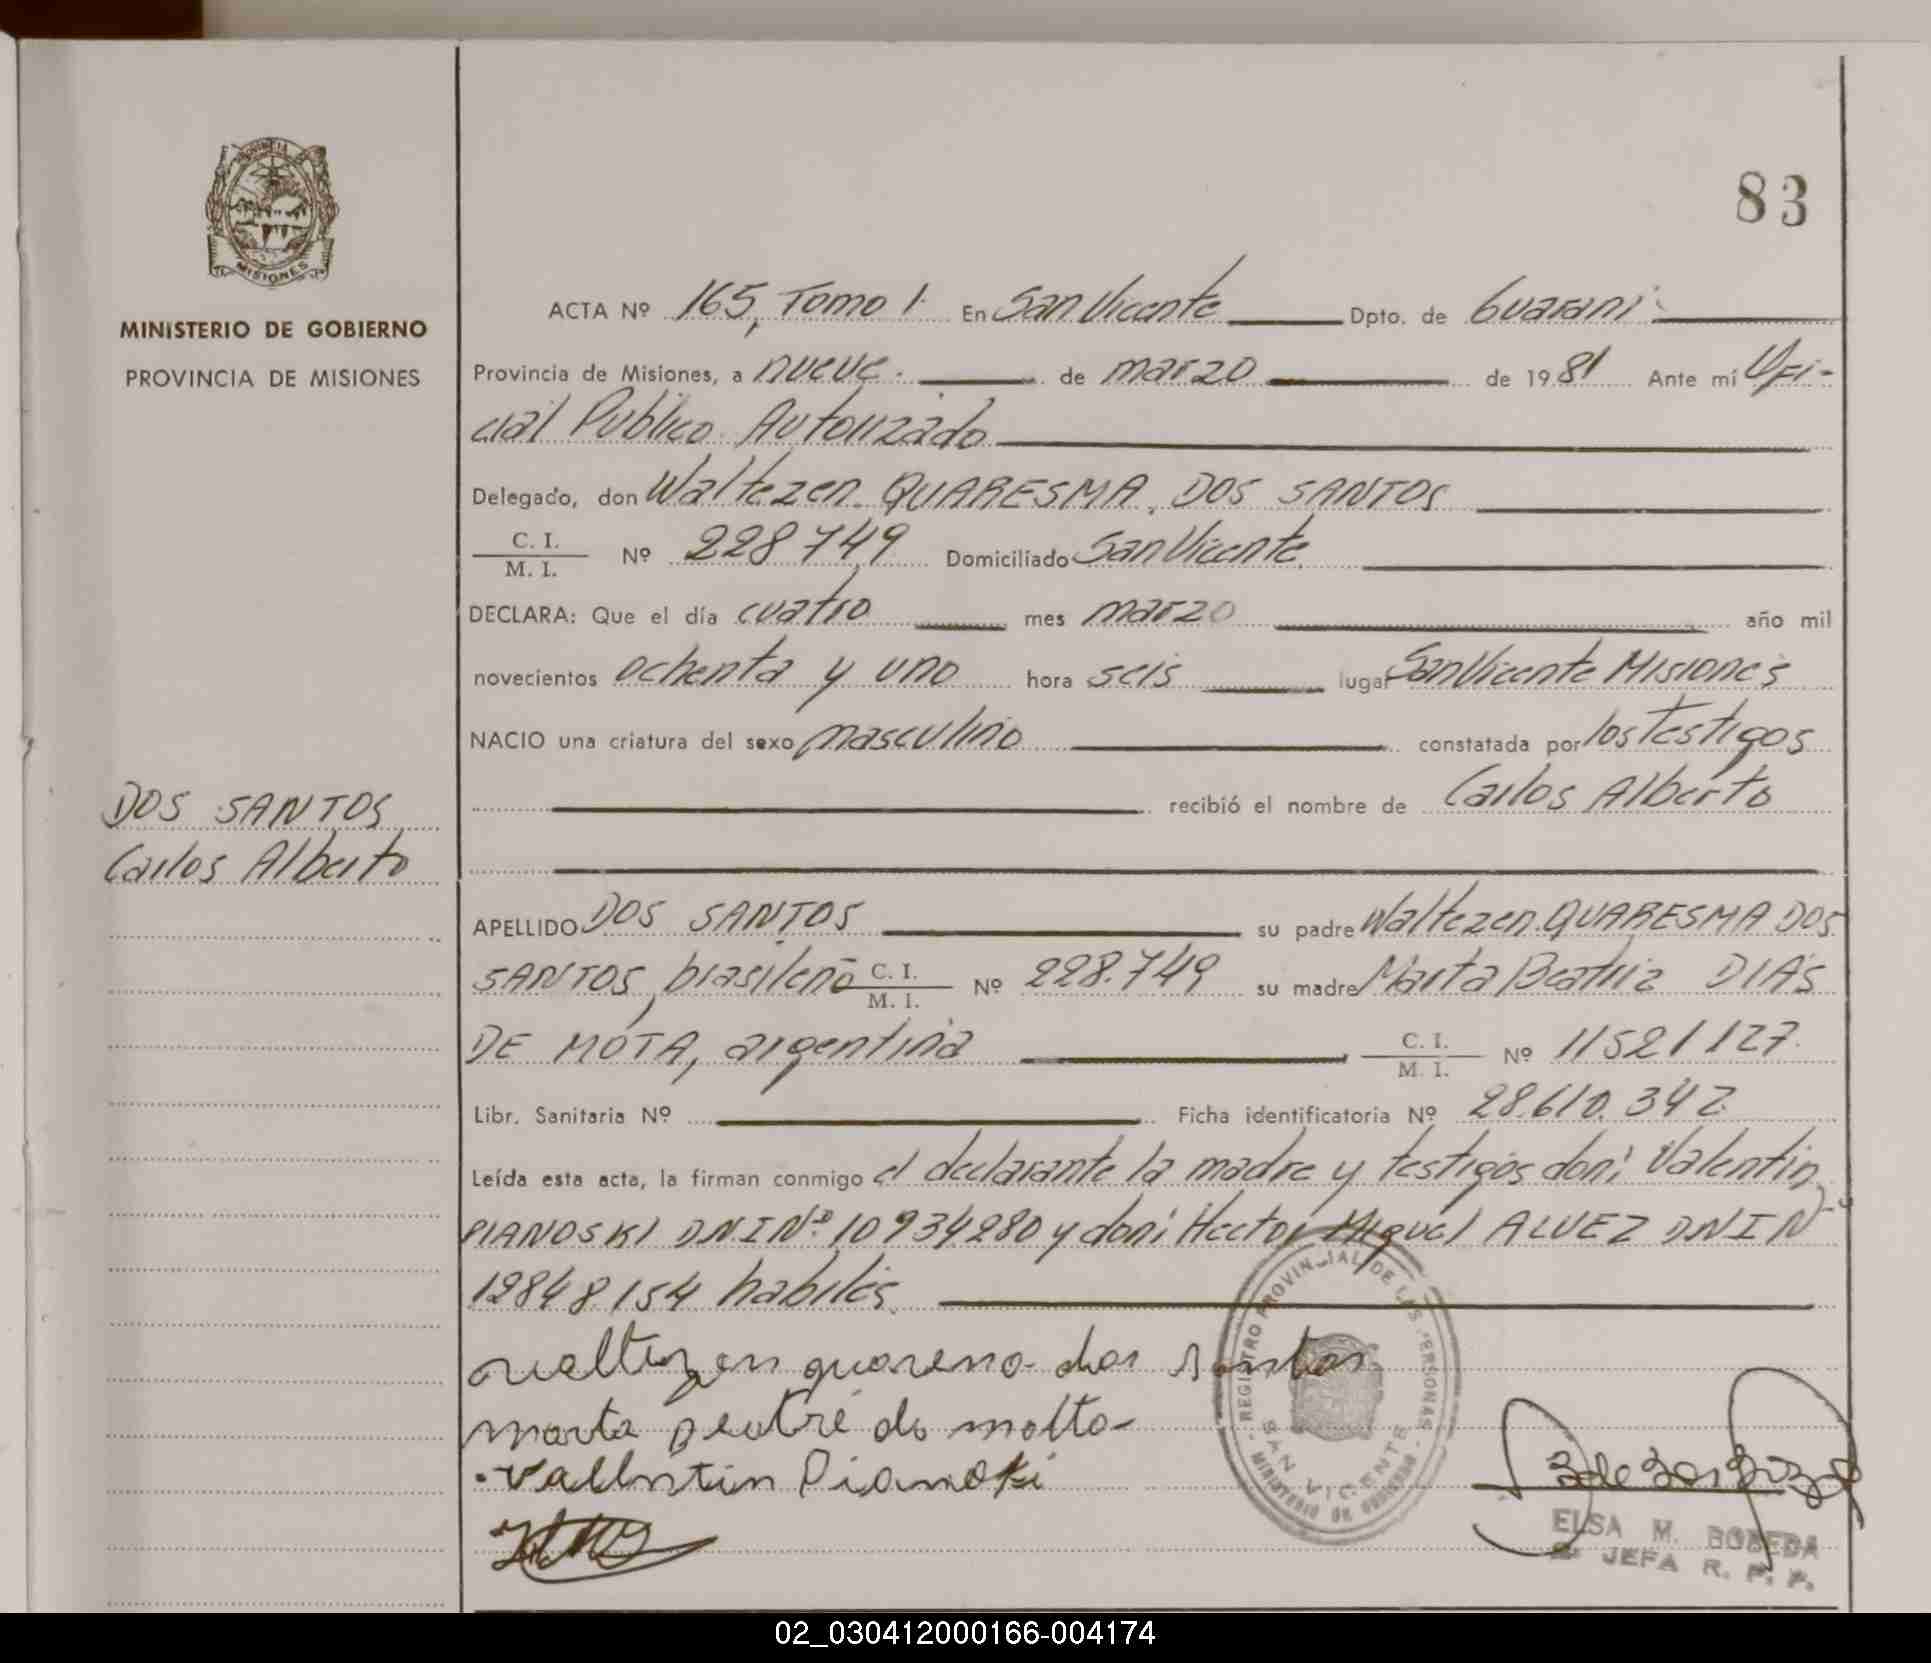 83
PROVINCIA
MISIONES
MINISTERIO DE GOBIERNO
PROVINCIA DE MISIONES
DOS SANTOS
Carlos Alberto
ACTA Nº 165, Tomo 1. En San Vicente Dpto. de Guarani
Provincia de Misiones, a nueve. de marzo de 1981 Ante mí Ofi-
cial Publico Autorizado
Delegado, don Waltezen QUARESMA DOS SANTOS
C. I.
M. I. Nº 228749 Domiciliado San Vicente
DECLARA: Que el día cuatro mes marzo año mil
novecientos ochenta y uno hora seis lugar San Vicente Misiones
NACIO una criatura del sexo masculino constatada por los Testigos
recibió el nombre de Carlos Alberto
APELLIDO DOS SANTOS su padre Waltezen QUARESMA DOS
SANTOS, brasileño C. I. M. I. Nº 228.749 su madre Marta Beatriz DIAS
DE MOTA, argentina C. I. M. I. Nº 11521127.
Libr. Sanitaria Nº Ficha identificatoria Nº 28.610.342
Leída esta acta, la firman conmigo el declarante la madre y testigos don: Valentin
PIANOSKI DNI Nº 10934280 y don: Hector Miguel ALVEZ DNI Nº
12848154 habiles.
dos santos
marta
Valentin
REGISTRO PROVINCIAL DE LAS PERSONAS
SAN VICENTE
MINISTERIO DE GOBIERNO
ELSA M. BOBEDA
JEFA R. P. P.
02_030412000166-004174